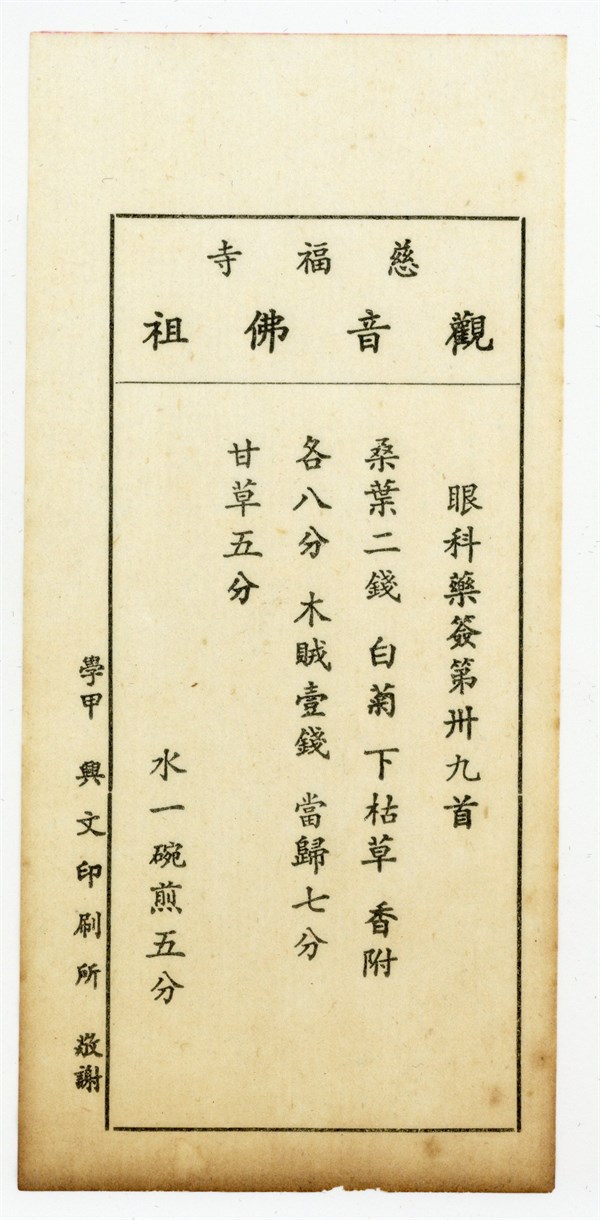 慈福寺
觀音佛祖
眼科藥簽第卅九首
桑葉二錢 白菊 下枯草 香附
各八分 木賊壹錢 當歸七分
甘草五分
水一碗煎五分
學甲 興文印刷所 敬謝